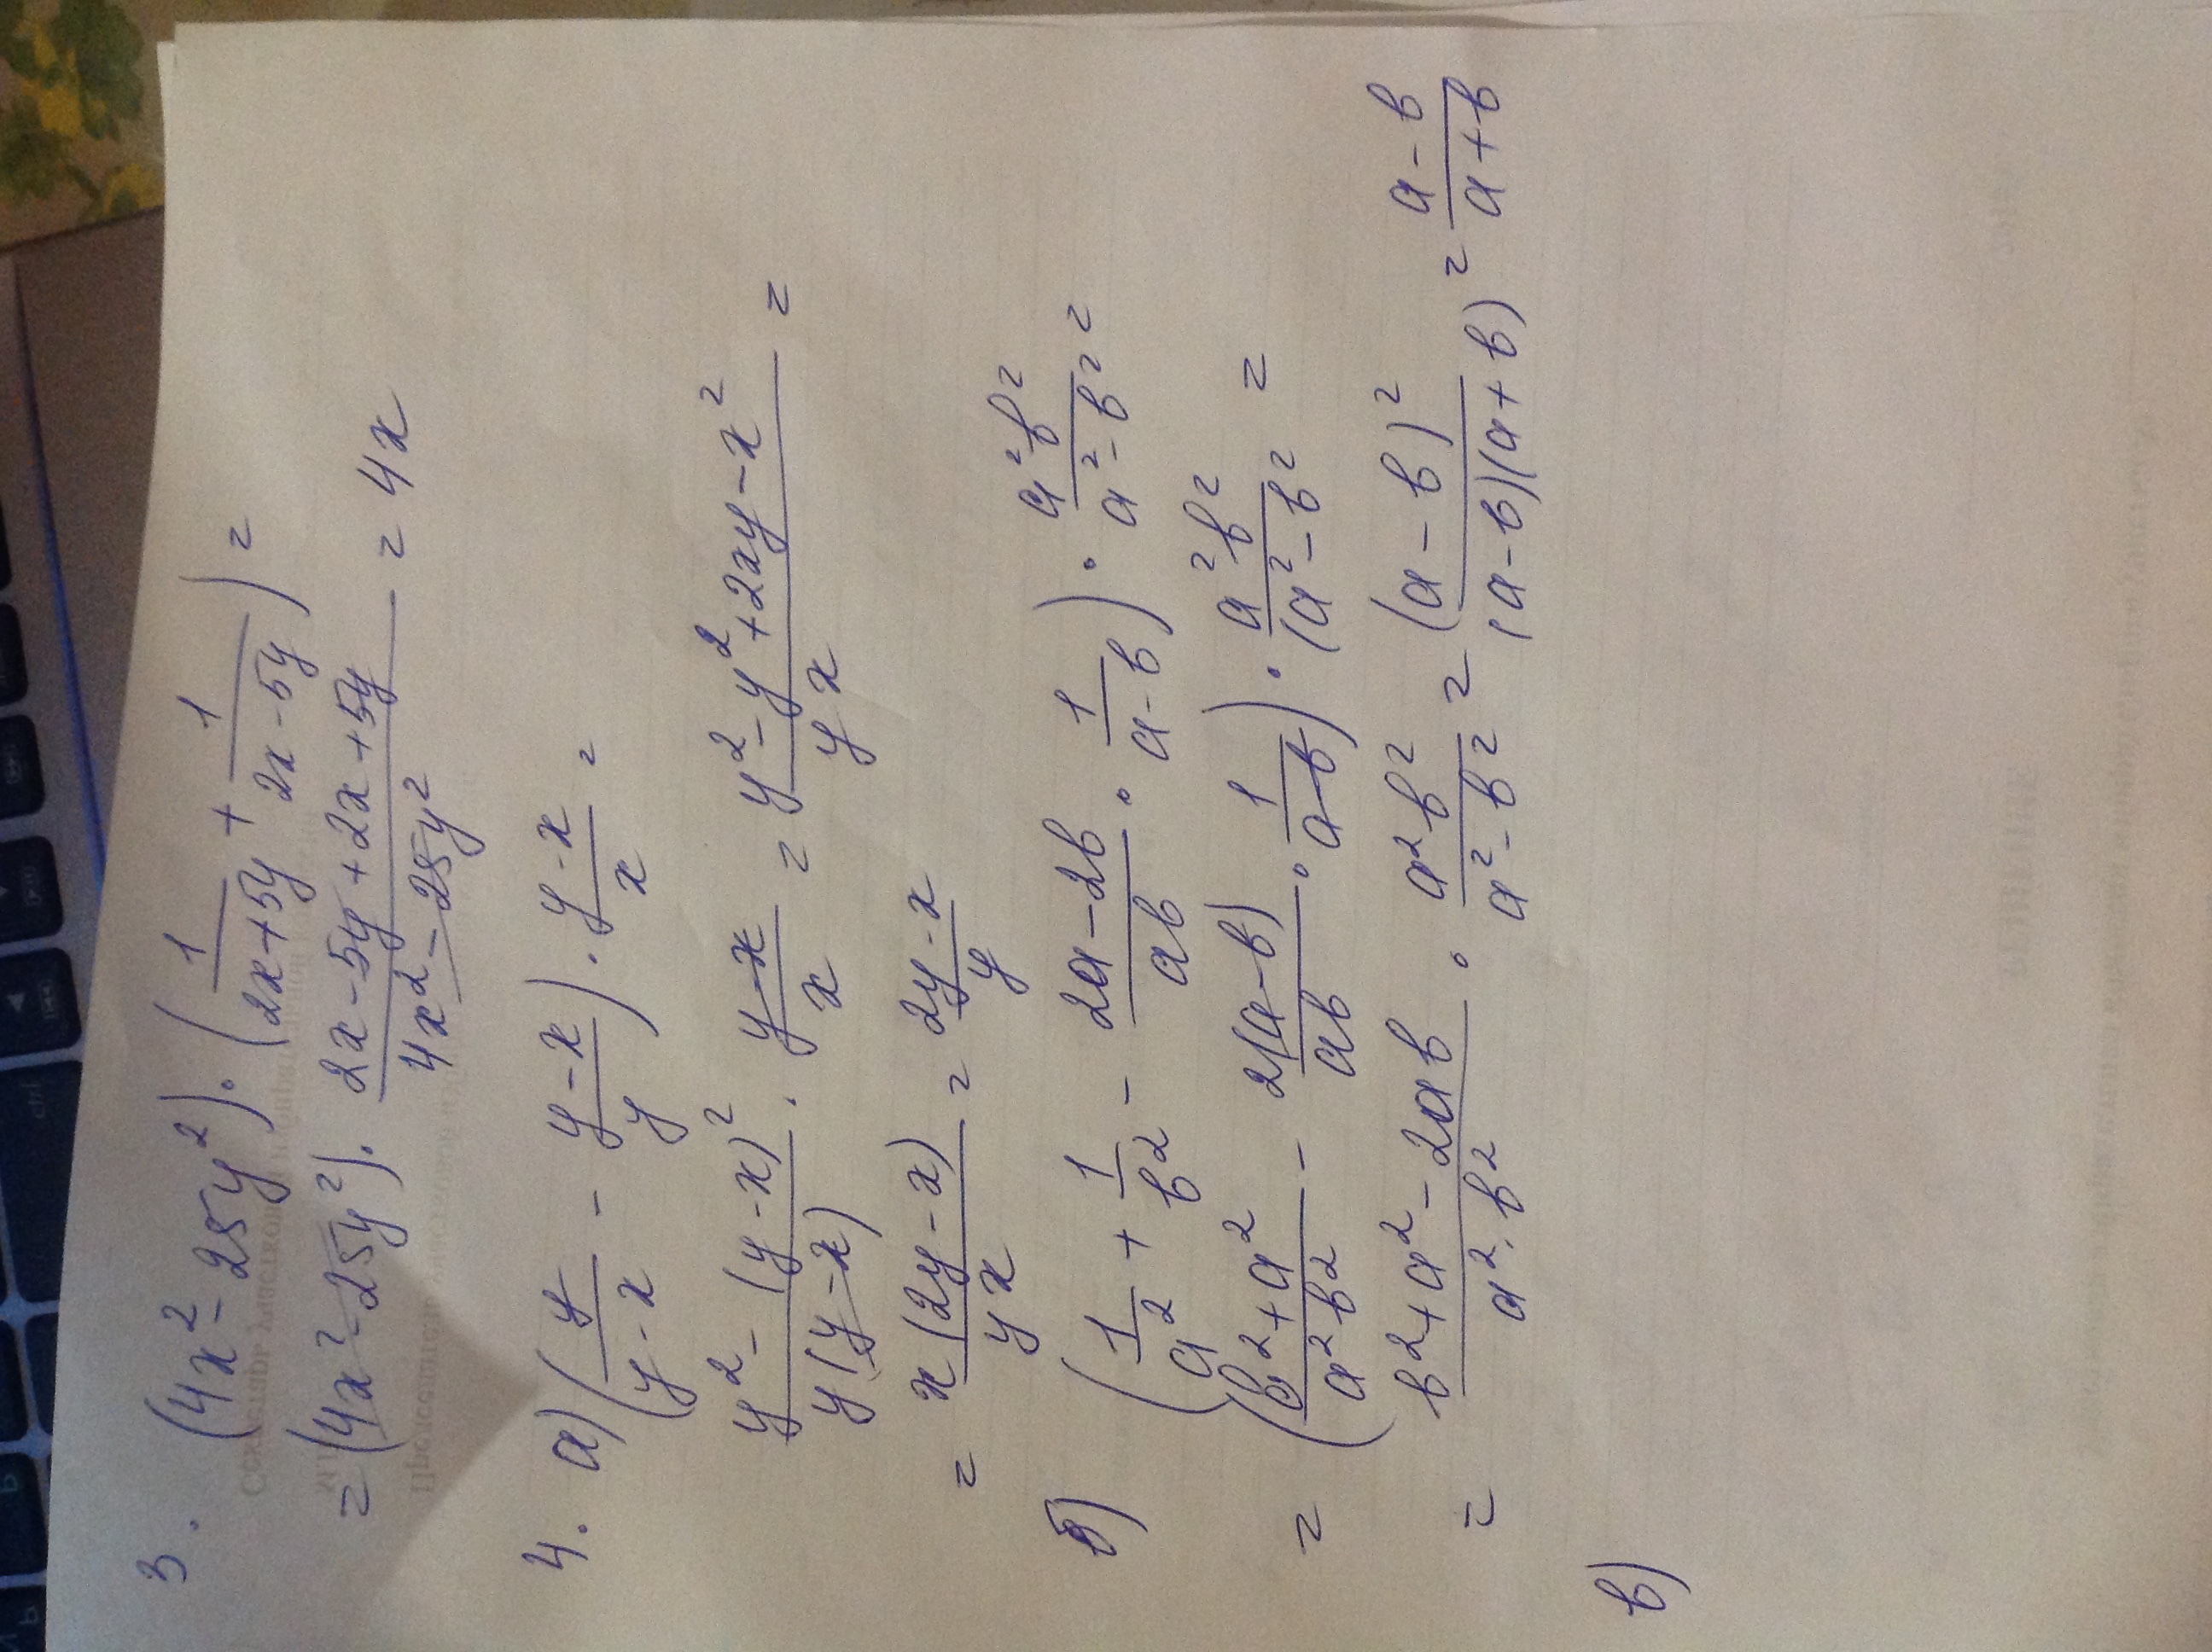 3. (4x² - 25y²) · (1/(2x+5y) + 1/(2x-5y)) =
= (4x² - 25y²) · (2x-5y+2x+5y)/(4x²-25y²) = 4x
4. а) (y/(y-x) - (y-x)/y) · (y-x)/x =
(y² - (y-x)²)/(y(y-x)) · (y-x)/x = (y²-y²+2xy-x²)/(yx) =
= x(2y-x)/(yx) = (2y-x)/y
б) (1/a² + 1/b² - (2a-2b)/(ab) · 1/(a-b)) · a²b²/(a²-b²) =
= ((b²+a²)/(a²b²) - 2(a-b)/(ab) · 1/(a-b)) · a²b²/(a²-b²) =
= (b²+a²-2ab)/(a²·b²) · a²b²/(a²-b²) = (a-b)²/((a-b)(a+b)) = (a-b)/(a+b)
в)